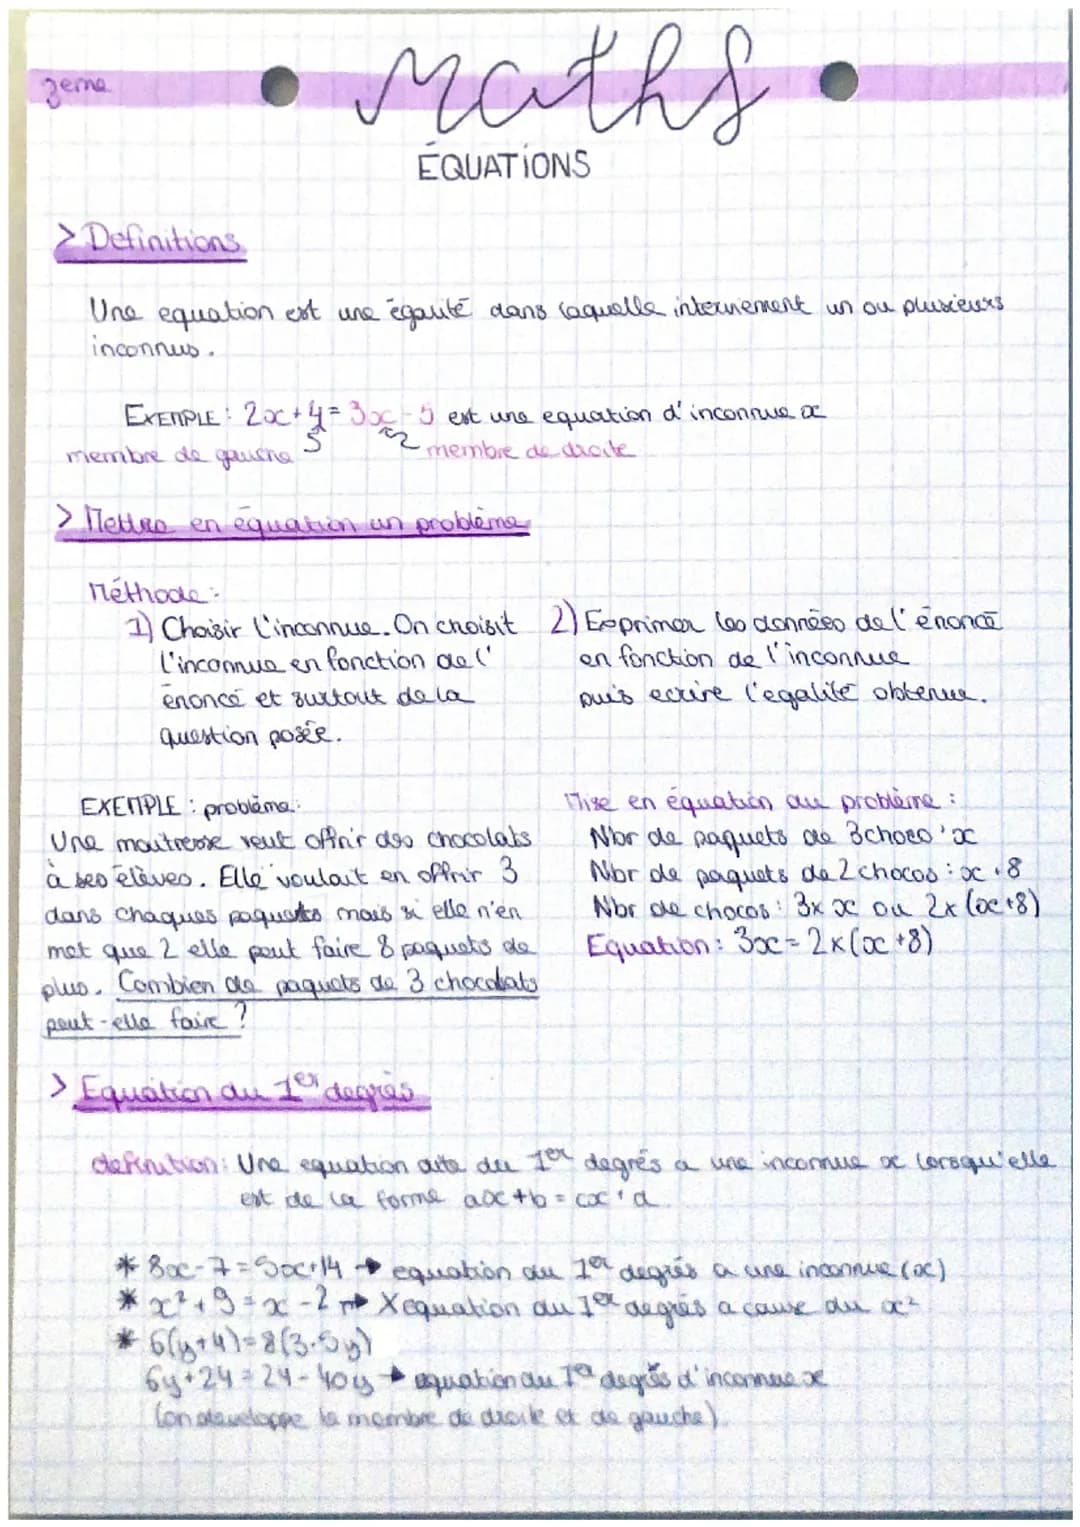 3eme
Maths
ÉQUATIONS
> Definitions
Une equation est une égalité dans laquelle interviennent un ou plusieurs
inconnus.
EXEMPLE : 2x+4 = 3x-5 est une equation d'inconnue x
membre de gauche
membre de droite
> Mettre en équation un problème
Méthode :
1) Choisir l'inconnue. On choisit
l'inconnue en fonction de l'
énoncé et surtout de la
question posée.
2) Exprimer les données de l'énoncé
en fonction de l'inconnue
puis ecrire l'egalité obtenue.
EXEMPLE : problème:
Une maitresse veut offrir des chocolats
à ses élèves. Elle voulait en offrir 3
dans chaques paquets mais si elle n'en
met que 2 elle peut faire 8 paquets de
plus. Combien de paquets de 3 chocolats
peut-elle faire ?
Mise en équation du problème :
Nbr de paquets de 3 choco : x
Nbr de paquets de 2 chocos : x+8
Nbr de chocos : 3x x ou 2x (x+8)
Equation : 3x = 2x(x+8)
> Equation du 1er degrés
definition: Une equation dite du 1er degrés a une inconnue x lorsqu'elle
est de la forme ax+b = cx+d
* 8x-7=5x+14 → equation du 1er degrés a une inconnue (x)
* x²+9=x-2 → X equation du 1er degrés a cause du x²
* 6(y+4)=8(3-5y)
6y+24=24-40y → equation du 1er degrés d'inconnue x
(on developpe le membre de droite et de gauche).